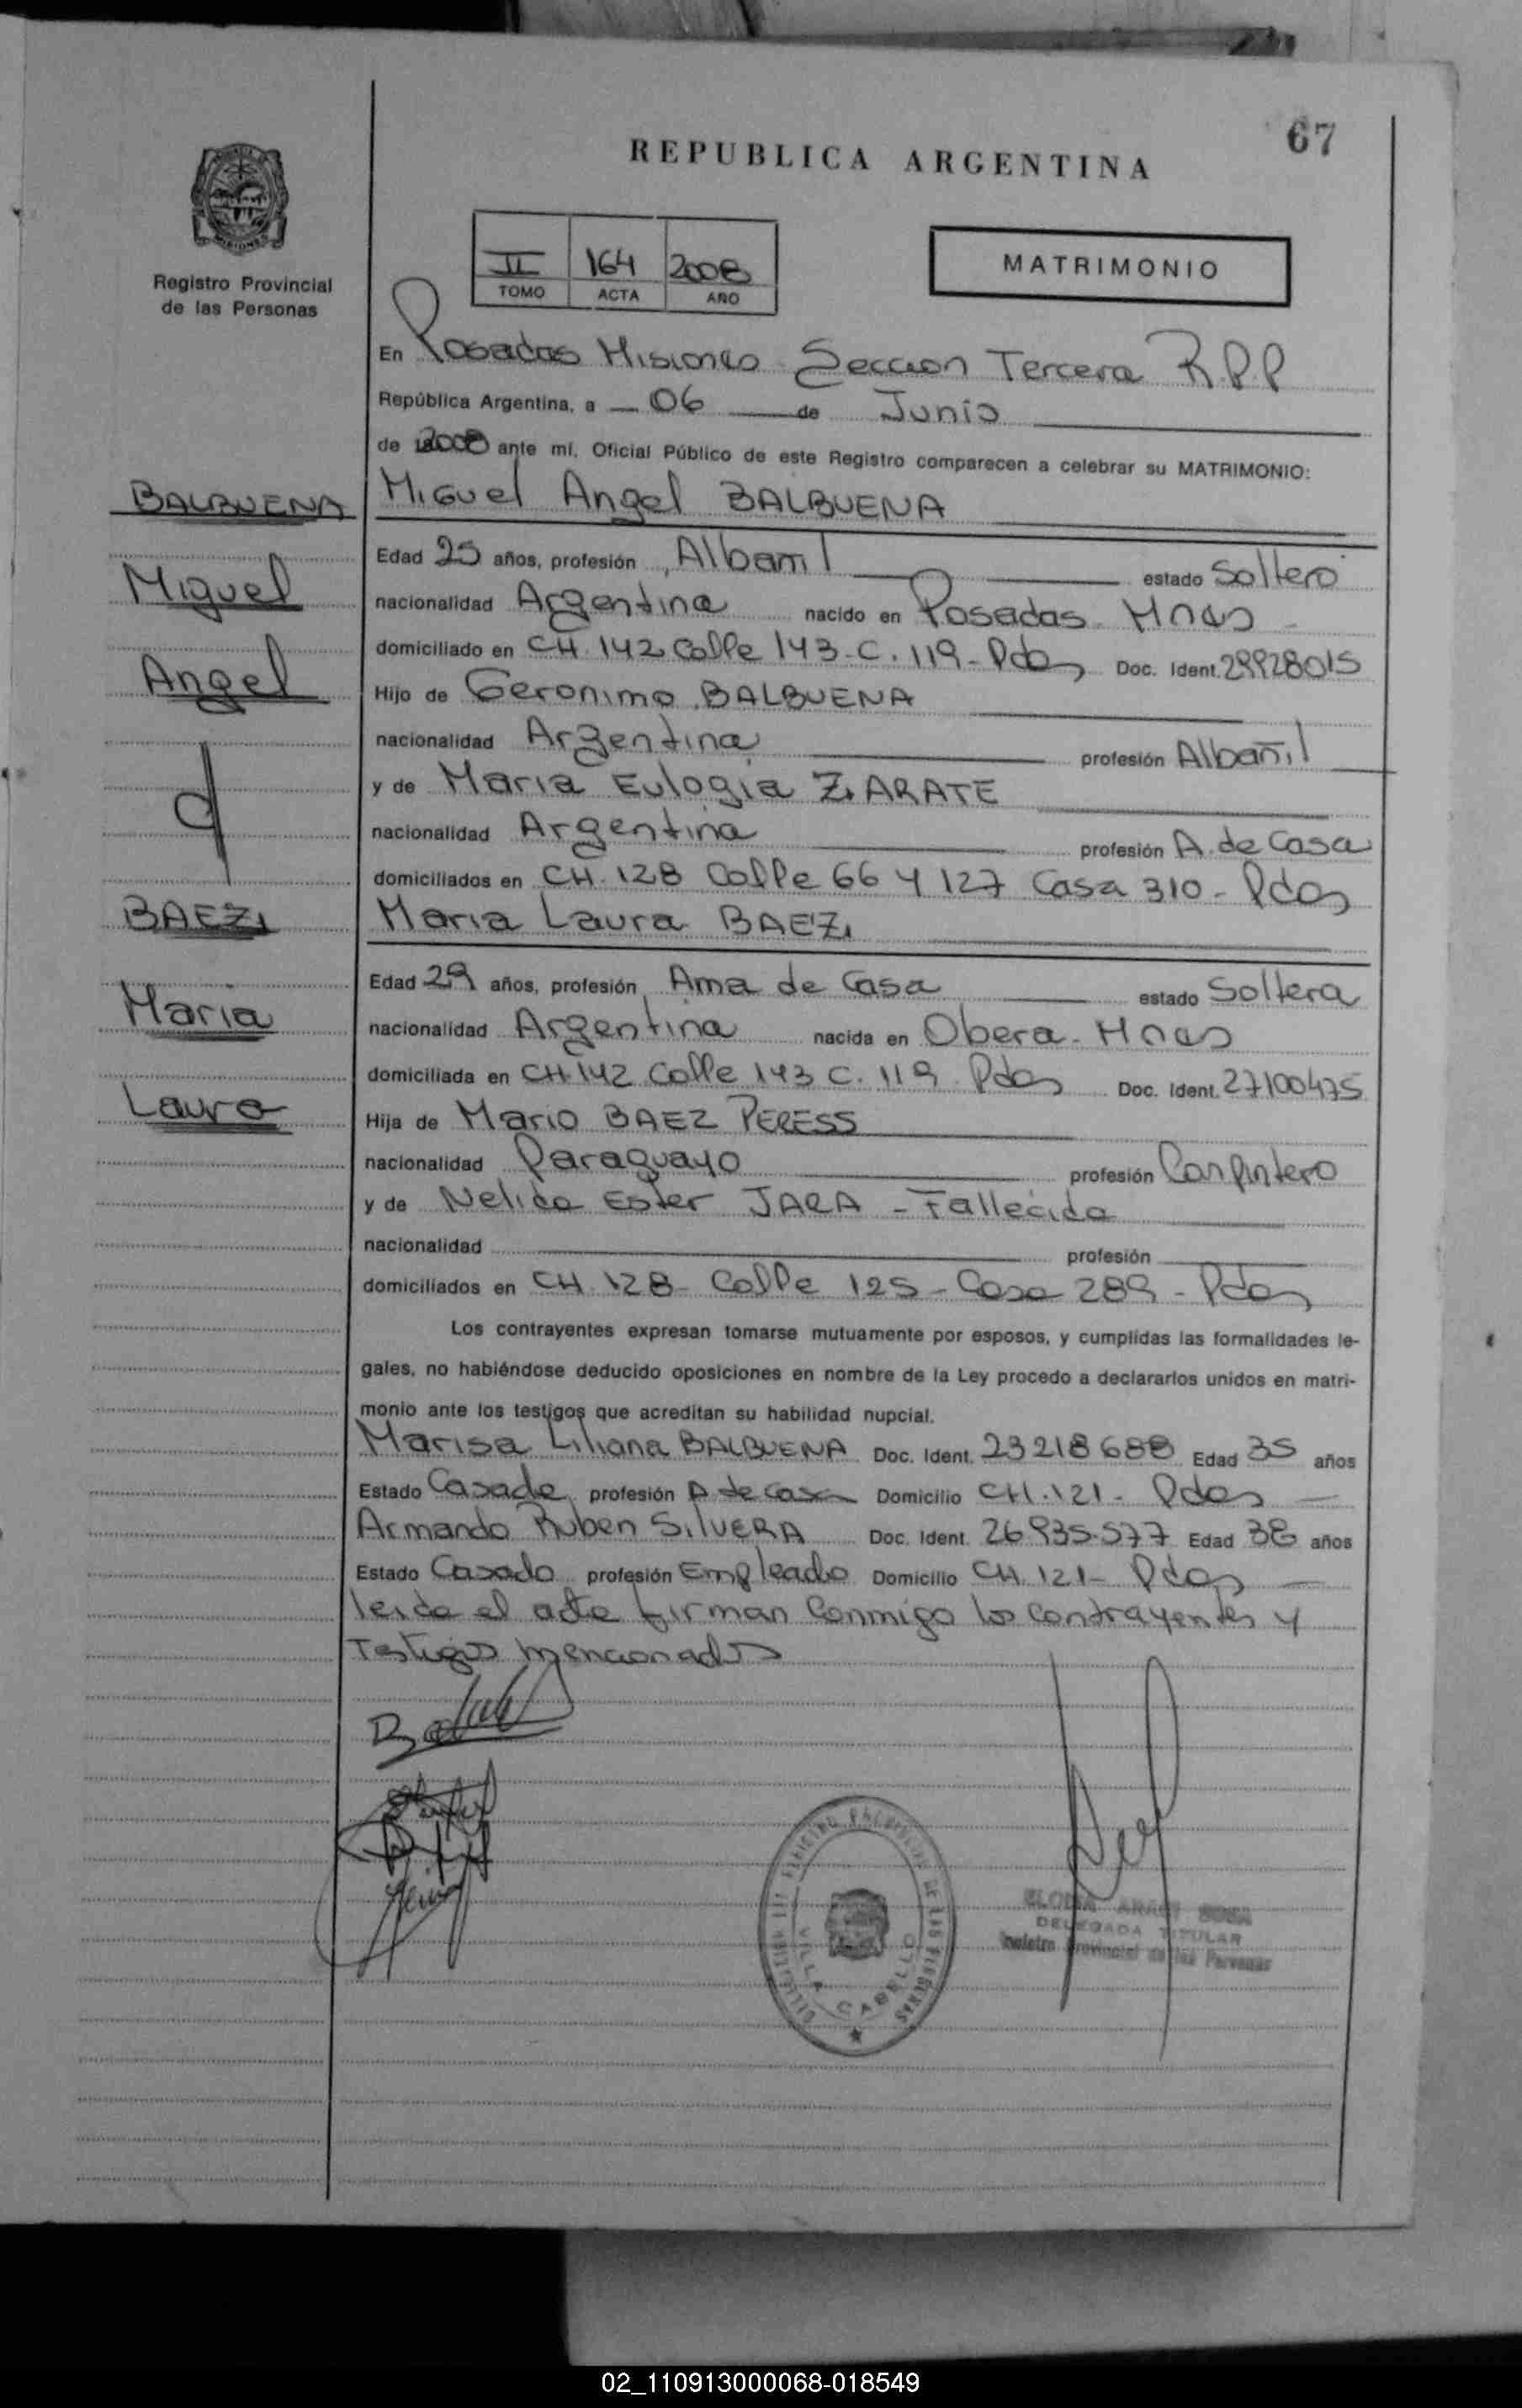 67
REPUBLICA ARGENTINA
MISIONES
Registro Provincial
de las Personas
II 164 2008
TOMO ACTA AÑO
MATRIMONIO
En Posadas Misiones Seccion Tercera R.P.P
República Argentina, a — 06 — de Junio
de 2008 ante mí, Oficial Público de este Registro comparecen a celebrar su MATRIMONIO:
BALBUENA
Miguel Angel BALBUENA
Edad 25 años, profesión Albañil estado Soltero
Miguel
nacionalidad Argentina nacido en Posadas Mnes
domiciliado en CH. 142 Calle 143 - C. 119 - Pdas Doc. Ident. 29928015
Angel
Hijo de Geronimo BALBUENA
nacionalidad Argentina profesión Albañil
y de Maria Eulogia ZARATE
nacionalidad Argentina profesión A. de Casa
domiciliados en CH. 128 Calle 66 y 127 Casa 310 - Pdas
BAEZ
Maria Laura BAEZ
Edad 29 años, profesión Ama de Casa estado Soltera
Maria
nacionalidad Argentina nacida en Obera - Mnes
domiciliada en CH 142 Calle 143 C. 119 Pdas Doc. Ident. 27100475
Laura
Hija de Mario BAEZ PERESS
nacionalidad Paraguayo profesión Carpintero
y de Nelida Ester JARA - Fallecida
nacionalidad profesión
domiciliados en CH. 128 - Calle 125 - Casa 289 - Pdas
Los contrayentes expresan tomarse mutuamente por esposos, y cumplidas las formalidades le-
gales, no habiéndose deducido oposiciones en nombre de la Ley procedo a declararlos unidos en matri-
monio ante los testigos que acreditan su habilidad nupcial.
Marisa Liliana BALBUENA Doc. Ident. 23218688 Edad 35 años
Estado Casada profesión A de Casa Domicilio CH. 121 - Pdas —
Armando Ruben SILVERA Doc. Ident. 26.935.577 Edad 38 años
Estado Casado profesión Empleado Domicilio CH. 121 - Pdas —
leida el acta firman conmigo los contrayentes y
Testigos mencionados
REGISTRO PROVINCIAL DE LAS PERSONAS
VILLA CABELLO
SOSA
DELEGADA TITULAR
Registro Provincial de las Personas
02_110913000068-018549